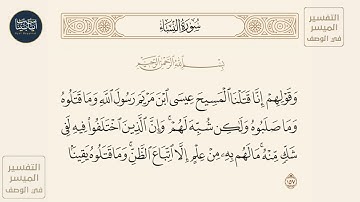 سُورَةُ النِّسَاءِ
التفسير
الميسر
في الوصف
بِسْمِ اللَّهِ الرَّحْمَٰنِ الرَّحِيمِ
وَقَوْلِهِمْ إِنَّا قَتَلْنَا ٱلْمَسِيحَ عِيسَى ٱبْنَ مَرْيَمَ رَسُولَ ٱللَّهِ وَمَا قَتَلُوهُ
وَمَا صَلَبُوهُ وَلَٰكِن شُبِّهَ لَهُمْ ۚ وَإِنَّ ٱلَّذِينَ ٱخْتَلَفُوا۟ فِيهِ لَفِى
شَكٍّ مِّنْهُ ۚ مَا لَهُم بِهِۦ مِنْ عِلْمٍ إِلَّا ٱتِّبَاعَ ٱلظَّنِّ ۚ وَمَا قَتَلُوهُ يَقِينًۢا
١٥٧
التفسير
الميسر
في الوصف